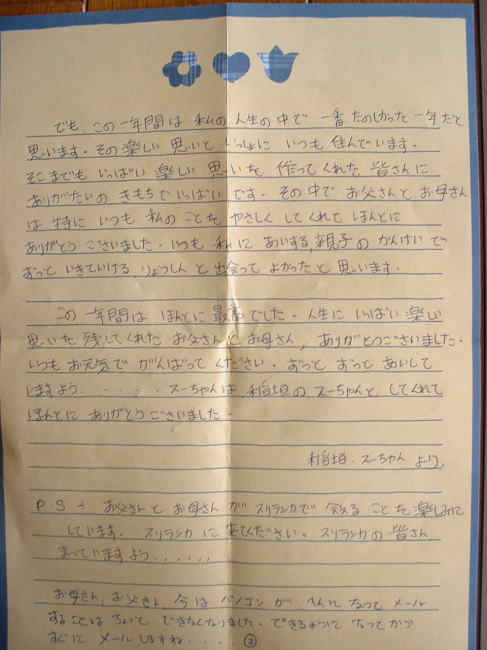 でも、この一年間は私の人生の中で一番たのしかった一年だと
思います。その楽しい思いといっしょにいつも住んでいます。
そこまでもいっぱい楽しい思いを作ってくれた皆さんに
ありがたいのきもちでいっぱいです。その中でお父さんとお母さん
は特にいつも私のことをやさしくしてくれてほんとに
ありがとうございました。いつも私にあいする、親子のかんけいで
ずっといきていけるりょうしんと出会ってよかったと思います。
この一年間はほんとに最高でした。人生にいっぱい楽しい
思いを残してくれたお父さんとお母さん、ありがとうございました。
いつもお元気でがんばってください。ずっとずっとあいして
いますよう.......スーちゃんは稲垣のスーちゃんとしてくれて
ほんとにありがとうございました。
稲垣.スーちゃんより,
P.S ÷ お父さんとお母さんがスリランカで会えることを楽しみに
しています。スリランカに来てください。スリランカの皆さん
まっていますよう......
お母さん,お父さん,今はパソコンがへんになってメール
することはちょっとできなくなりました。できるようになってから
すぐにメールしますね....②